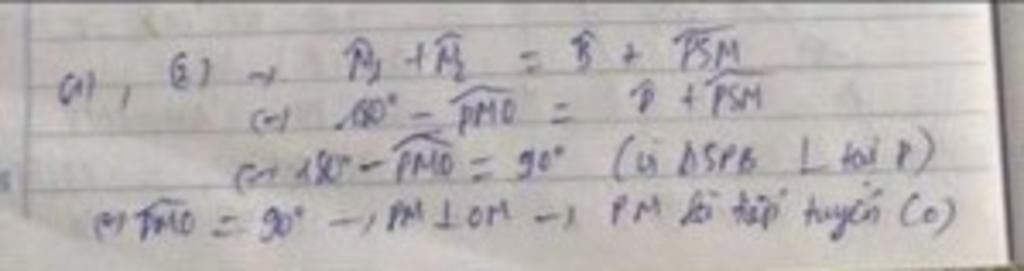 (1), (2) → M̂₁ + M̂₂ = B̂ + PSM̂
(→ 180° − PMÔ = B̂ + PSM̂
(→ 180° − PMÔ = 90° (vì ΔSPB ⊥ tại P)
(→ PMÔ = 90° → PM ⊥ OM → PM là tiếp tuyến (O)